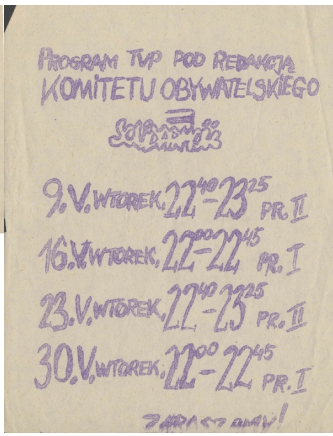 PROGRAM TVP POD REDAKCJĄ
KOMITETU OBYWATELSKIEGO
Solidarność
9.V. WTOREK. 22⁴⁰–23²⁵ PR. II
16.V. WTOREK. 22⁰⁰–22⁴⁵ PR. I
23.V. WTOREK. 22⁴⁰–23²⁵ PR. II
30.V. WTOREK. 22⁰⁰–22⁴⁵ PR. I
ZAPRASZAMY!